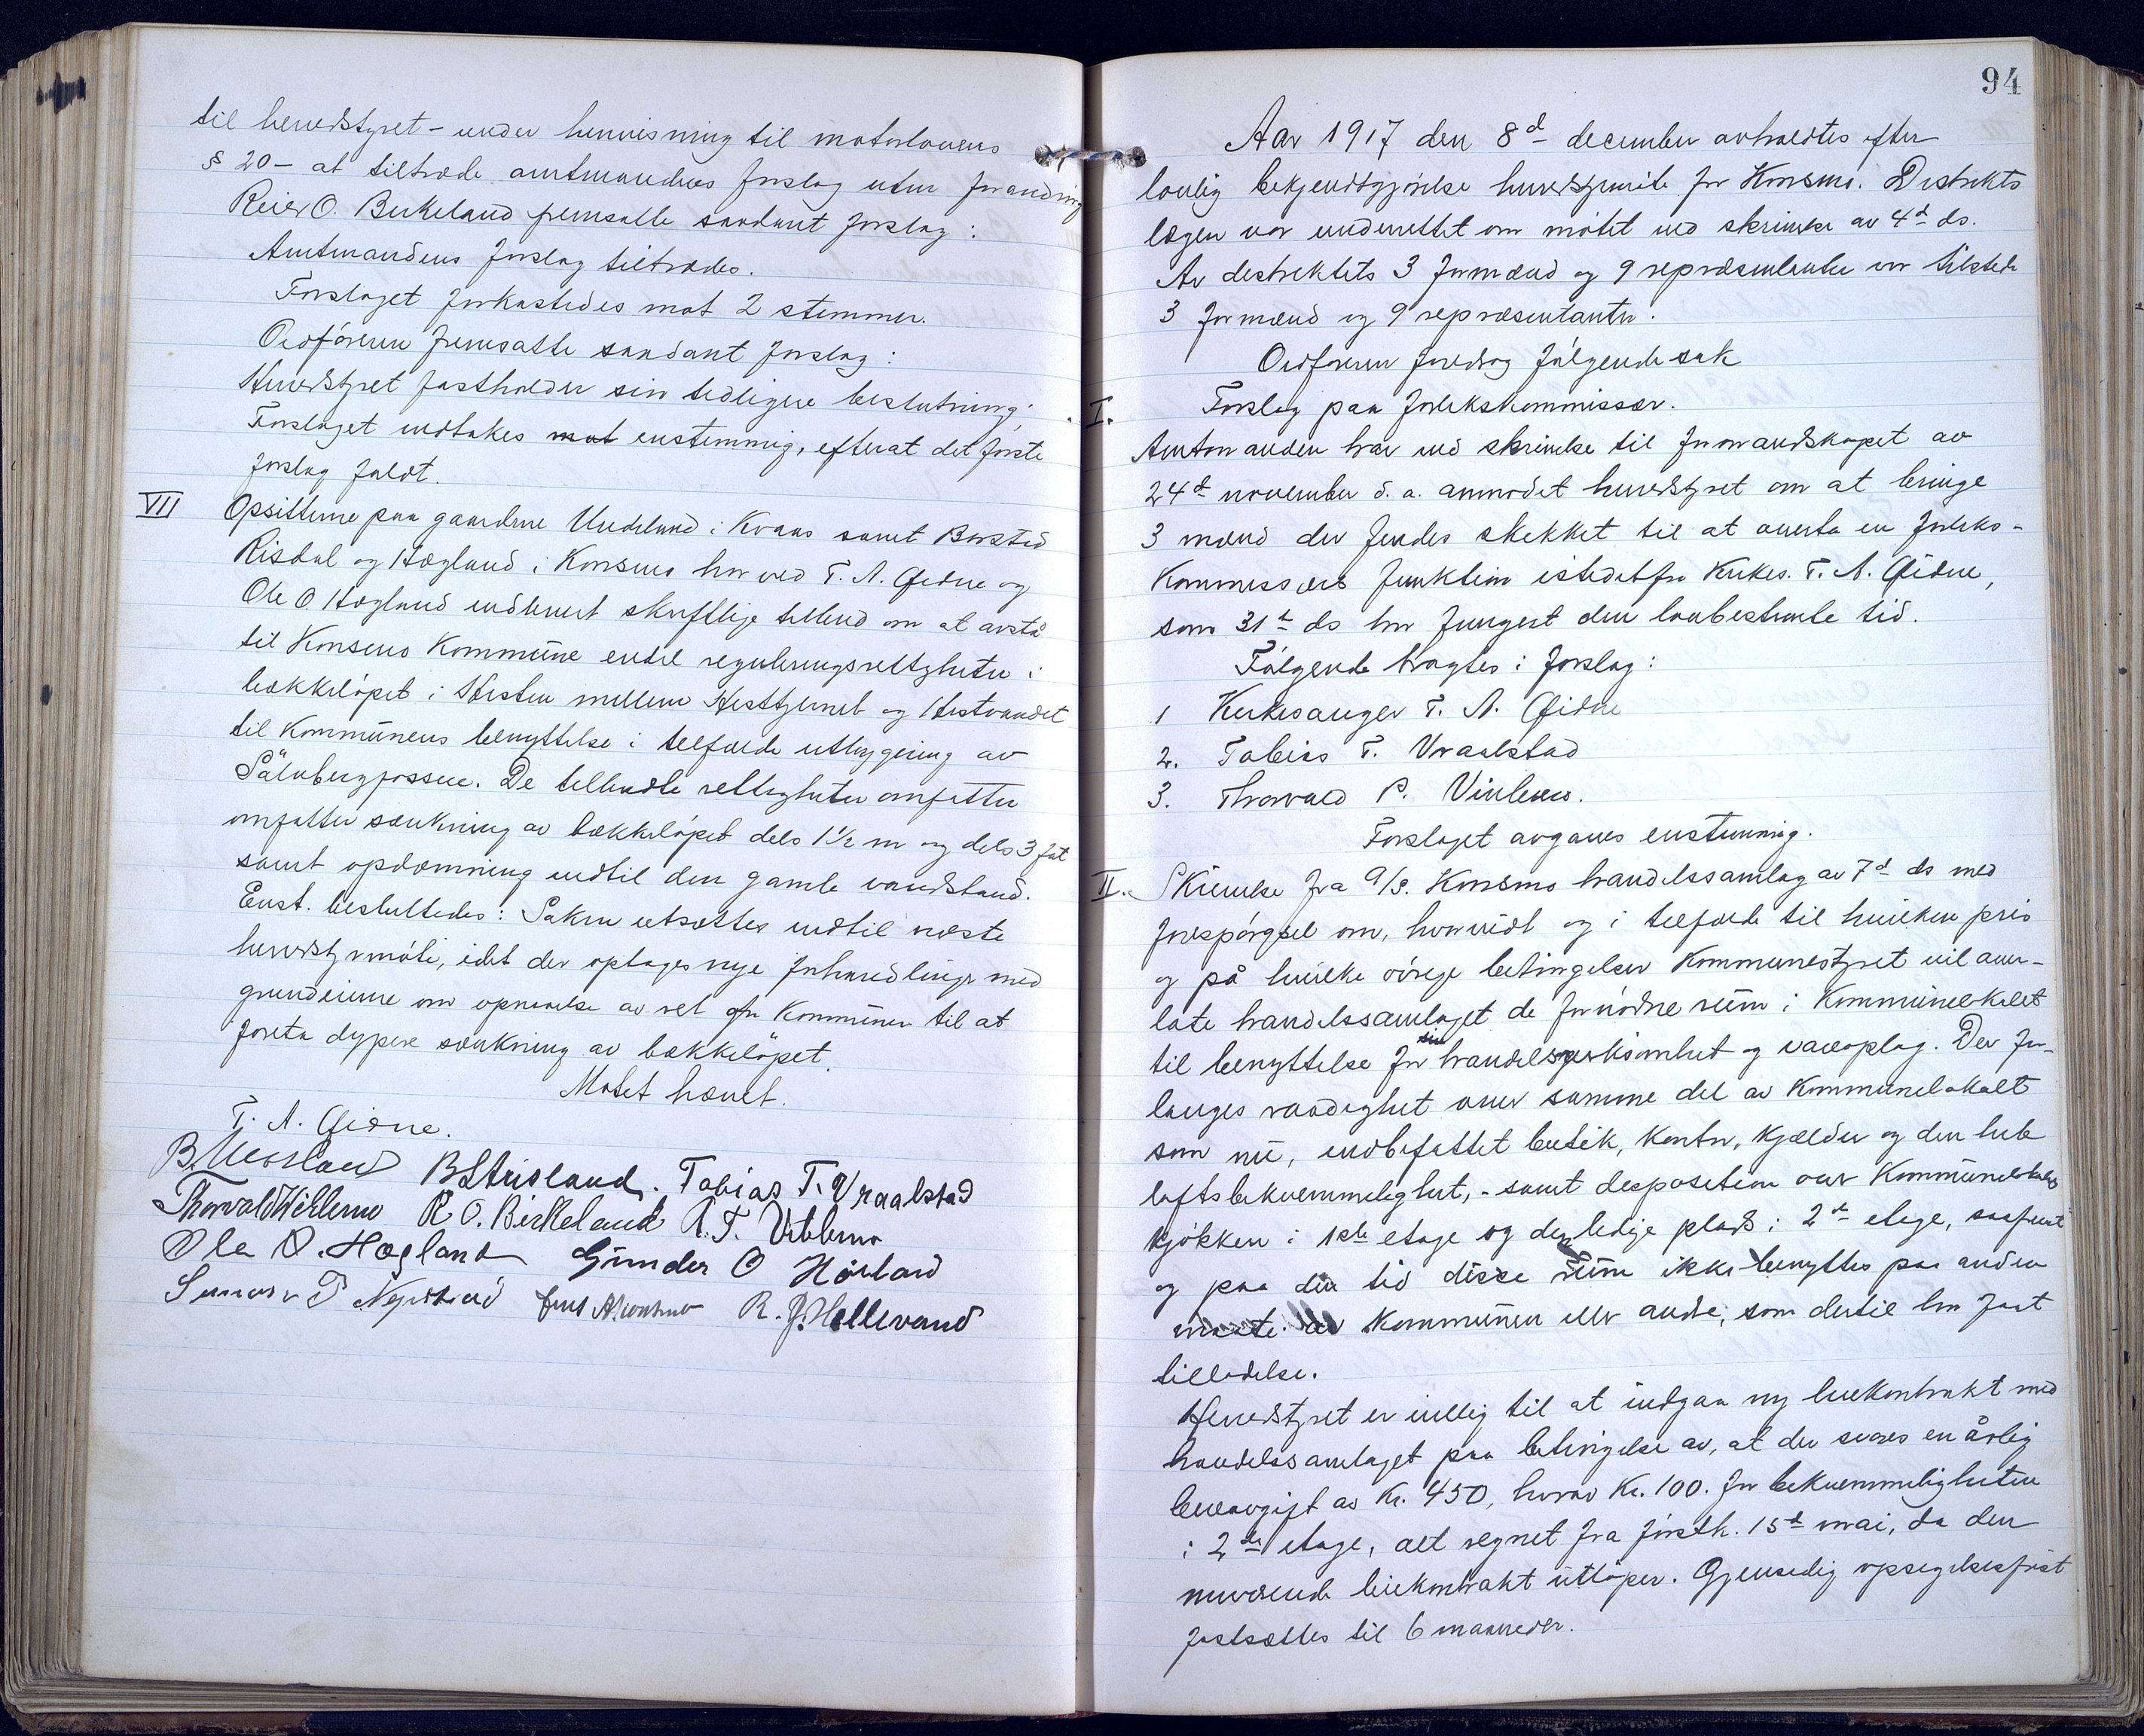 til herredstyret - under henvisning til motorlovens
§ 20 - at tiltræde amtmandens forslag uten forandring
Reier O. Birkeland fremsatte saadant forslag:
Amtmandens forslag tiltrædes.
Forslaget forkastedes mot 2 stemmer.
Ordføreren fremsatte saadant forslag:
Herredstyret fastholder sin tidligere beslutning.
Forslaget vedtakes mot enstemmig, efterat det første
forslag faldt.
VII Opsitterne paa gaardene Underland i Kvaas samt Borstad
Risdal og Høgland i Konsmo har ved T. A. Eidne og
Ole O Høgland indlevert skriftlige tilbud om at avstå
til Konsmo Kommune endel reguleringsrettigheter i
bækkeløpet i Hesten mellem Hesttjernet og Hestvandet
til Kommunens benyttelse i tilfælde utbygging av
Sålebergfossen. De tilbudte rettigheter omfatter
omfatter sænkning av bækkeløpet dels 1½ m og dels 3 fot
samt opdæmning indtil den gamle vandstand.
Enst. besluttedes: Saken utsættes indtil næste
herredstyrmøte, idet der optages nye forhandlinger med
grundeierne om opnaaelse av ret for Kommunen til at
foreta dypere sænkning av bækkeløpet.
Møtet hævet.
T. A. Eidne.
B. Stusland. Tobias T. Vraalstad
Thorvald Viblemo R O. Birkeland A. T. Viblemo
Ole O. Høgland Gunder O Hørland
R. J. Hellevand
94
Aar 1917 den 8d december avholdtes efter
lovlig bekjendtgjørelse herredsmøte for Konsmo. Distrikts
lægen var underrettet om møtet ved skrivelse av 4d ds.
Av distriktets 3 formænd og 9 repræsentanter var tilstede
3 formænd og 9 repræsentanter.
Ordføreren foredrog følgende sak
I. Forslag paa forlikskommissær.
Amtmanden har ved skrivelse til formandskapet av
24d november d. a. anmodet herredstyret om at bringe
3 mænd der findes skikket til at overta en forliks-
kommissærs funktion istedetfor Kirkes. T. A. Eidne,
som 31t ds har fungert den lovbestemte tid.
Følgende bragtes i forslag:
1 Kirkesanger T. A. Eidne
2. Tobias T. Vraalstad
3. Thorvald P. Viblemo.
Forslaget avgaves enstemmig.
II. Skrivelse fra A/S. Konsmo handelssamlag av 7d ds med
forespørgsel om, hvorvidt og i tilfælde til hvilken pris
og på hvilke øvrige betingelser Kommunestyret vil over-
late handelssamlaget de fornødne rum i Kommunelokalet
til benyttelse for sin handelsvirksomhet og vareoplag. Der for-
langes raadighet over samme del av Kommunelokalet
som nu, indbefattet butik, kontor, kjælder og den hele
loftsbekvemmelighet, - samt disposition over Kommunelokalets
kjøkken i 1ste etage og den ledige plads i 2d etage, saafremt
og paa den tid disse rum ikke benyttes paa anden
maate av Kommunen eller andre, som dertil har faat
tilladelse.
Herredstyret er villig til at indgaa ny leiekontrakt med
handelssamlaget paa betingelse av, at der svares en årlig
leieavgift av Kr. 450, hvorav Kr. 100. for bekvemmeligheten
i 2de etage, alt regnet fra førstk. 15d mai, da den
nuværende leiekontrakt utløper. Gjensidig opsigelsesfrist
fastsættes til 6 maaneder.